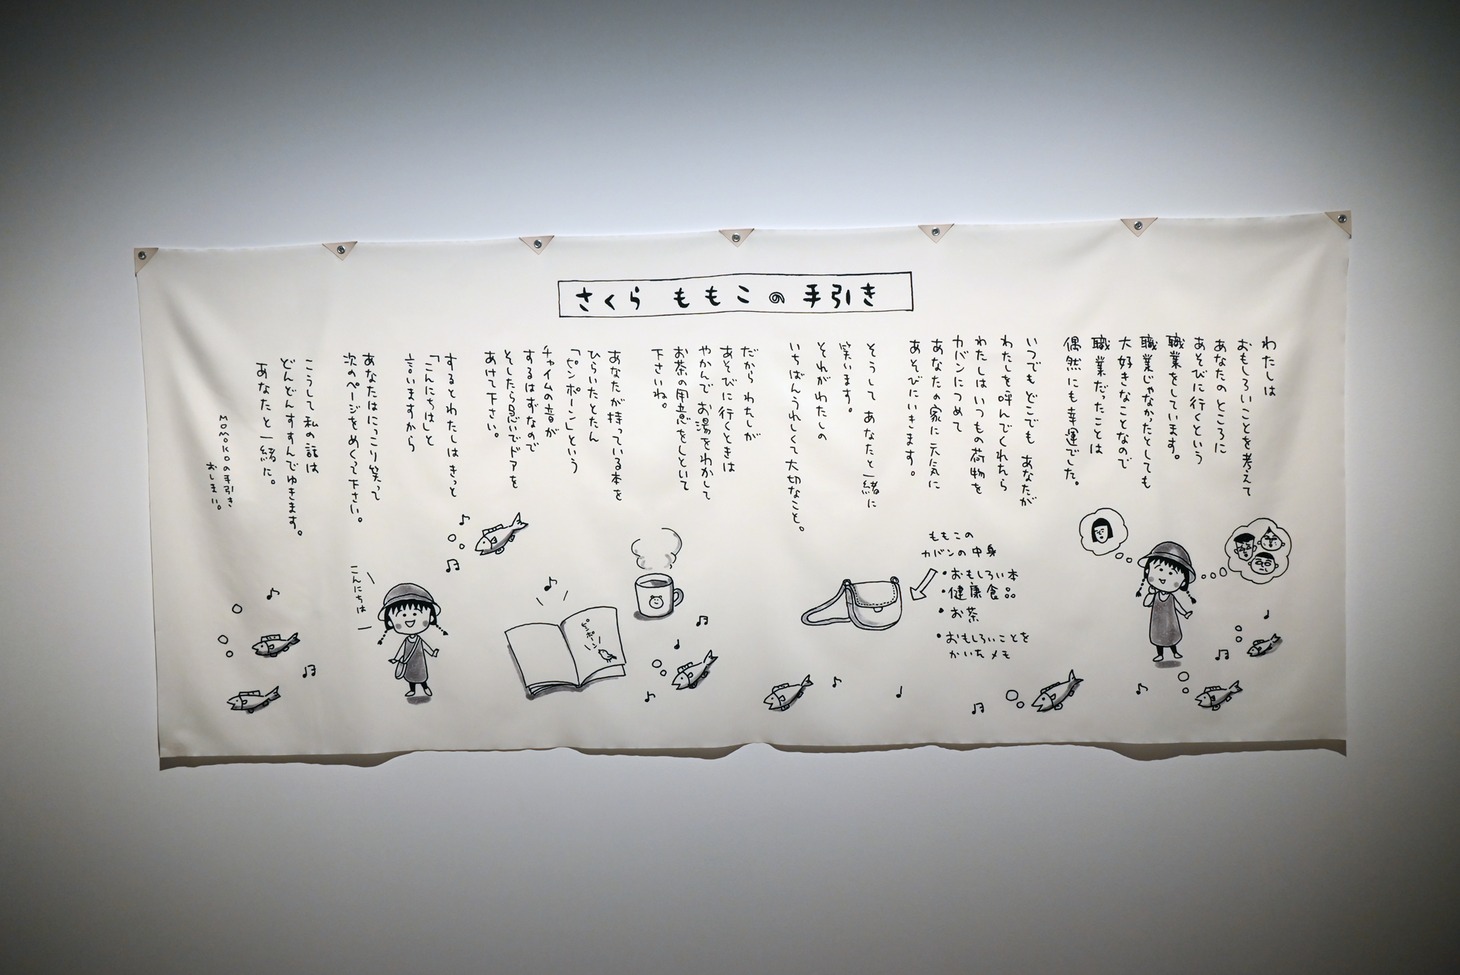 さくら ももこの手引き
わたしは
おもしろいことを考えて
あなたのところに
あそびに行くという
職業をしています。
職業じゃなかったとしても
大好きなことなので
職業だったことは
偶然にも幸運でした。
いつでも どこでも あなたが
わたしを呼んでくれたら
わたしはいつもの荷物を
カバンにつめて
あなたの家に元気に
あそびにいきます。
そうして あなたと一緒に
笑います。
それがわたしの
いちばんうれしくて大切なこと。
だから わたしが
あそびに行くときは
やかんで お湯をわかして
お茶の用意をしといて
下さいね。
あなたが持っている本を
ひらいたとたん
「ピンポーン」という
チャイムの音が
するはずなので
そしたら急いでドアを
あけて下さい。
するとわたしはきっと
「こんにちは」と
言いますから
あなたはにっこり笑って
次のページをめくって下さい。
こうして私の話は
どんどんすすんでゆきます。
あなたと一緒に。
MOMOKOの手引き
おしまい。
ももこの
カバンの中身
・おもしろい本
・健康食品
・お茶
・おもしろいことを
かいたメモ
ピンポーン
こんにちは